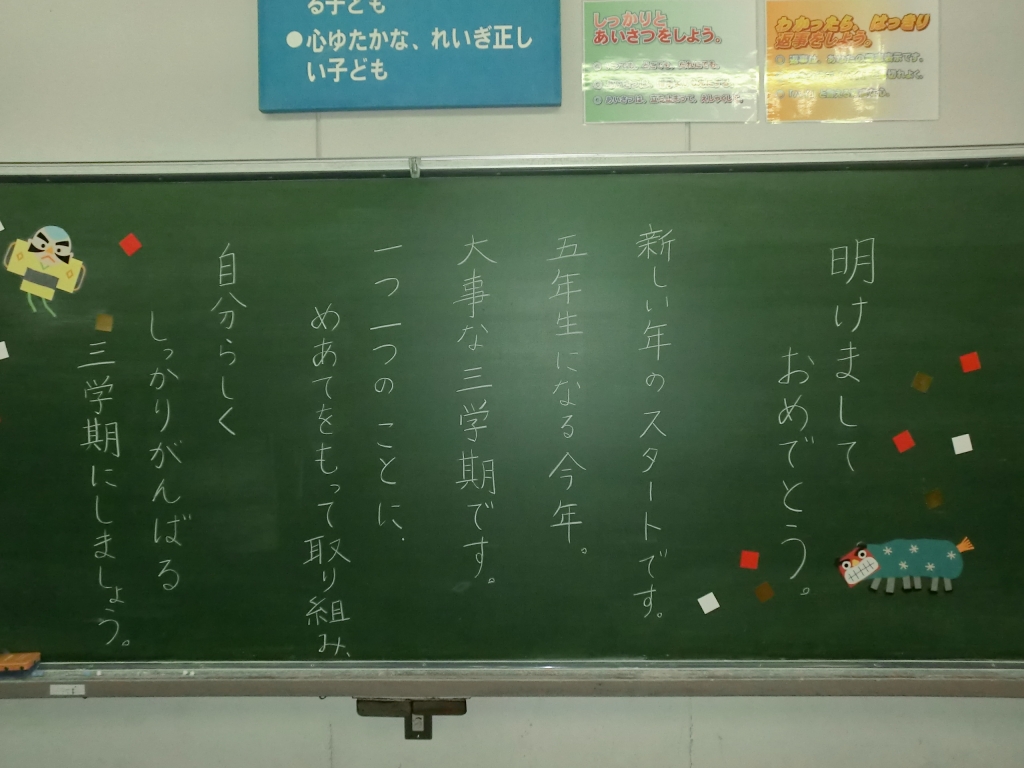 る子ども
●心ゆたかな、れいぎ正し
い子ども
しっかりと
あいさつをしよう。
わかったら、はっきり
返事をしよう。
明けまして
おめでとう。
新しい年のスタートです。
五年生になる今年。
大事な三学期です。
一つ一つのことに、
めあてをもって取り組み、
自分らしく
しっかりがんばる
三学期にしましょう。